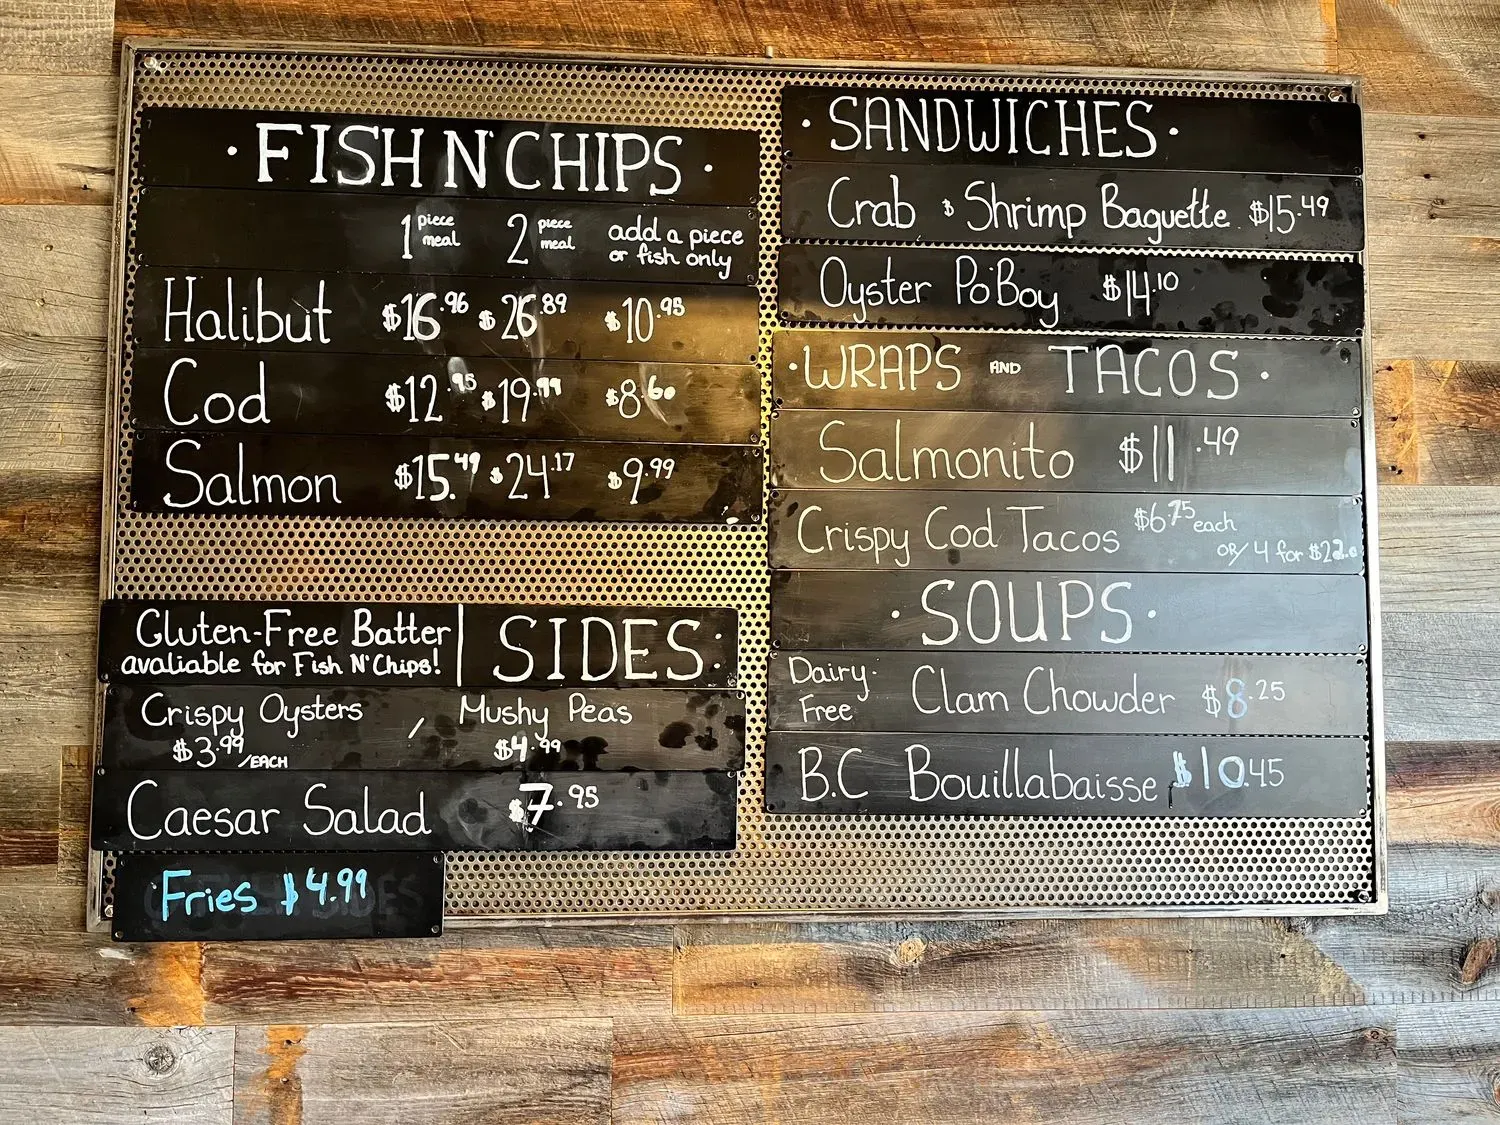 · FISH N' CHIPS ·
1 piece meal 2 piece meal add a piece or fish only
Halibut $16.96 $26.89 $10.95
Cod $12.95 $19.99 $8.60
Salmon $15.49 $24.17 $9.99
Gluten-Free Batter
avaliable for Fish N' Chips!
SIDES:
Crispy Oysters / Mushy Peas
$3.99/EACH $4.99
Caesar Salad $7.95
Fries $4.99
· SANDWICHES ·
Crab & Shrimp Baguette $15.49
Oyster Po'Boy $14.10
· WRAPS AND TACOS ·
Salmonito $11.49
Crispy Cod Tacos $6.75 each
OR/ 4 for
· SOUPS ·
Dairy-Free Clam Chowder $8.25
B.C Bouillabaisse $10.45